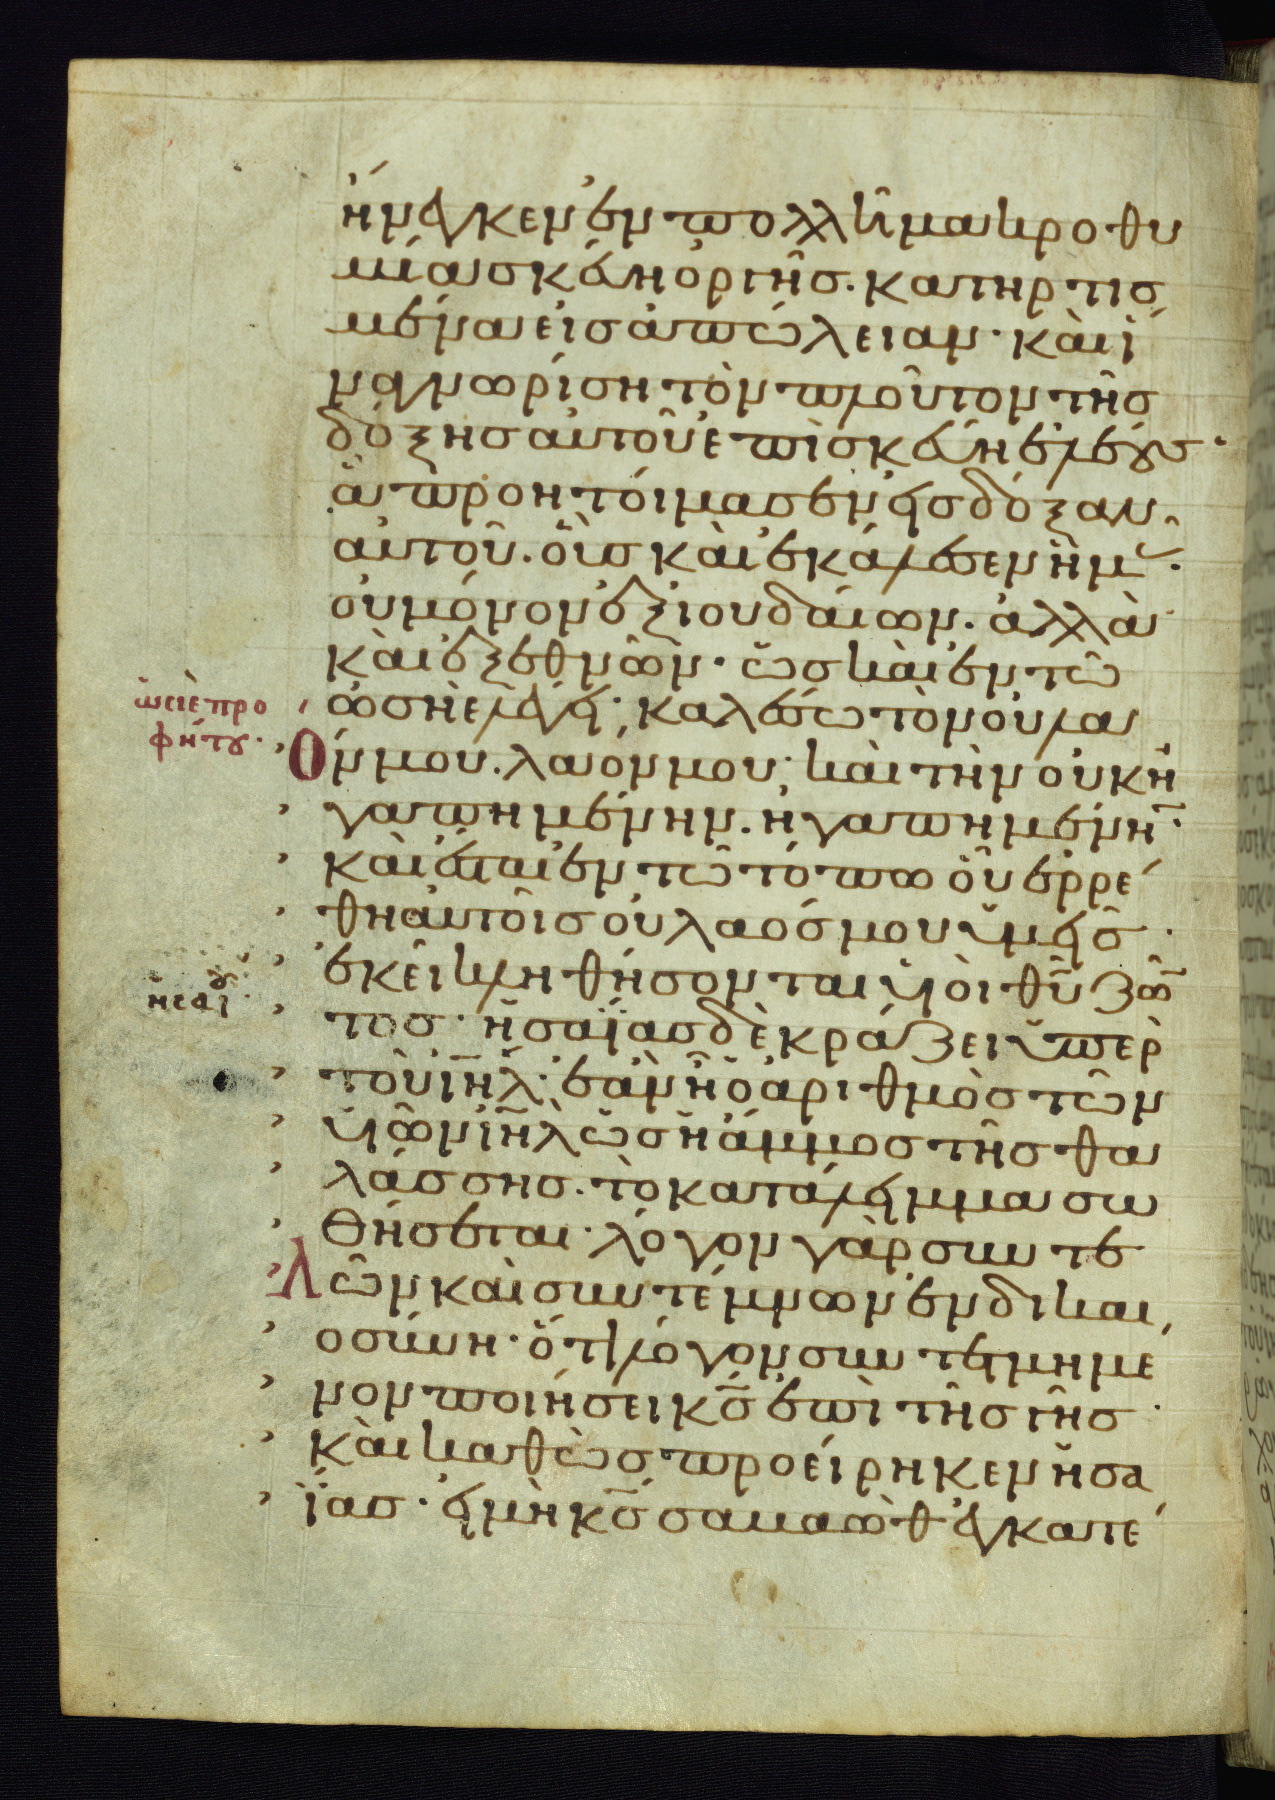 ἤνεγκεν ἐν πολλῆ μακροθυ
μία σκεύη ὀργῆσ. κατηρτισ
μένα εἰσ ἀπώλειαν· καὶ ἵ
να γνωρίση τὸν πλοῦτον τῆσ
δόξησ αὐτοῦ ἐπὶ σκεύη ἐλέουσ·
ἃ προητόιμασεν εἰσ δόξαν
αὐτοῦ. οὓσ κὰι ἐκάλεσεν ἡμᾶσ·
οὐ μόνον ἐξ ϊουδάιων. ἀλλὰ
κὰι ἐξ ἐθνῶν· ὡσ κὰι ἐν τῶ
ὡσηὲ λέγει· καλέσω τὸν οὐ λα
όν μου. λαόν μου· κὰι τὴν οὐκ ἠ
γαπημένην. ἠγαπημένην·
κὰι ἔσται ἐν τῶ τόπω οὗ ἐρρέ
θη ἀυτοῖσ οὐ λαόσ μου ὑμεῖσ·
ἐκεῖ κληθήσονται ὑιὸι θῦ ζῶν
τοσ· ἡσαΐασ δὲ κράζει ὑπὲρ
τοῦ ἰηλ· ἐὰν ἦ ὁ ἀριθμὸσ τῶν
ὑιῶν ἰηλ ὡσ ἡ ἄμμοσ τῆσ θα
λάσσησ. τὸ κατάλειμμα σω
θήσεται· λόγον γὰρ συντε
λῶν κὰι συντέμνων ἐν δικαι
οσύνη· ὅτι λόγον συντετμημέ
νον ποιήσει κσ ἐπὶ τῆσ γῆσ·
κὰι καθὼσ προέιρηκεν ἡσα
ΐασ· εἰ μὴ κσ σαβαὼθ ἐγκατέ
ὡσιὲ προ
φήτου·
ἡσαΐου